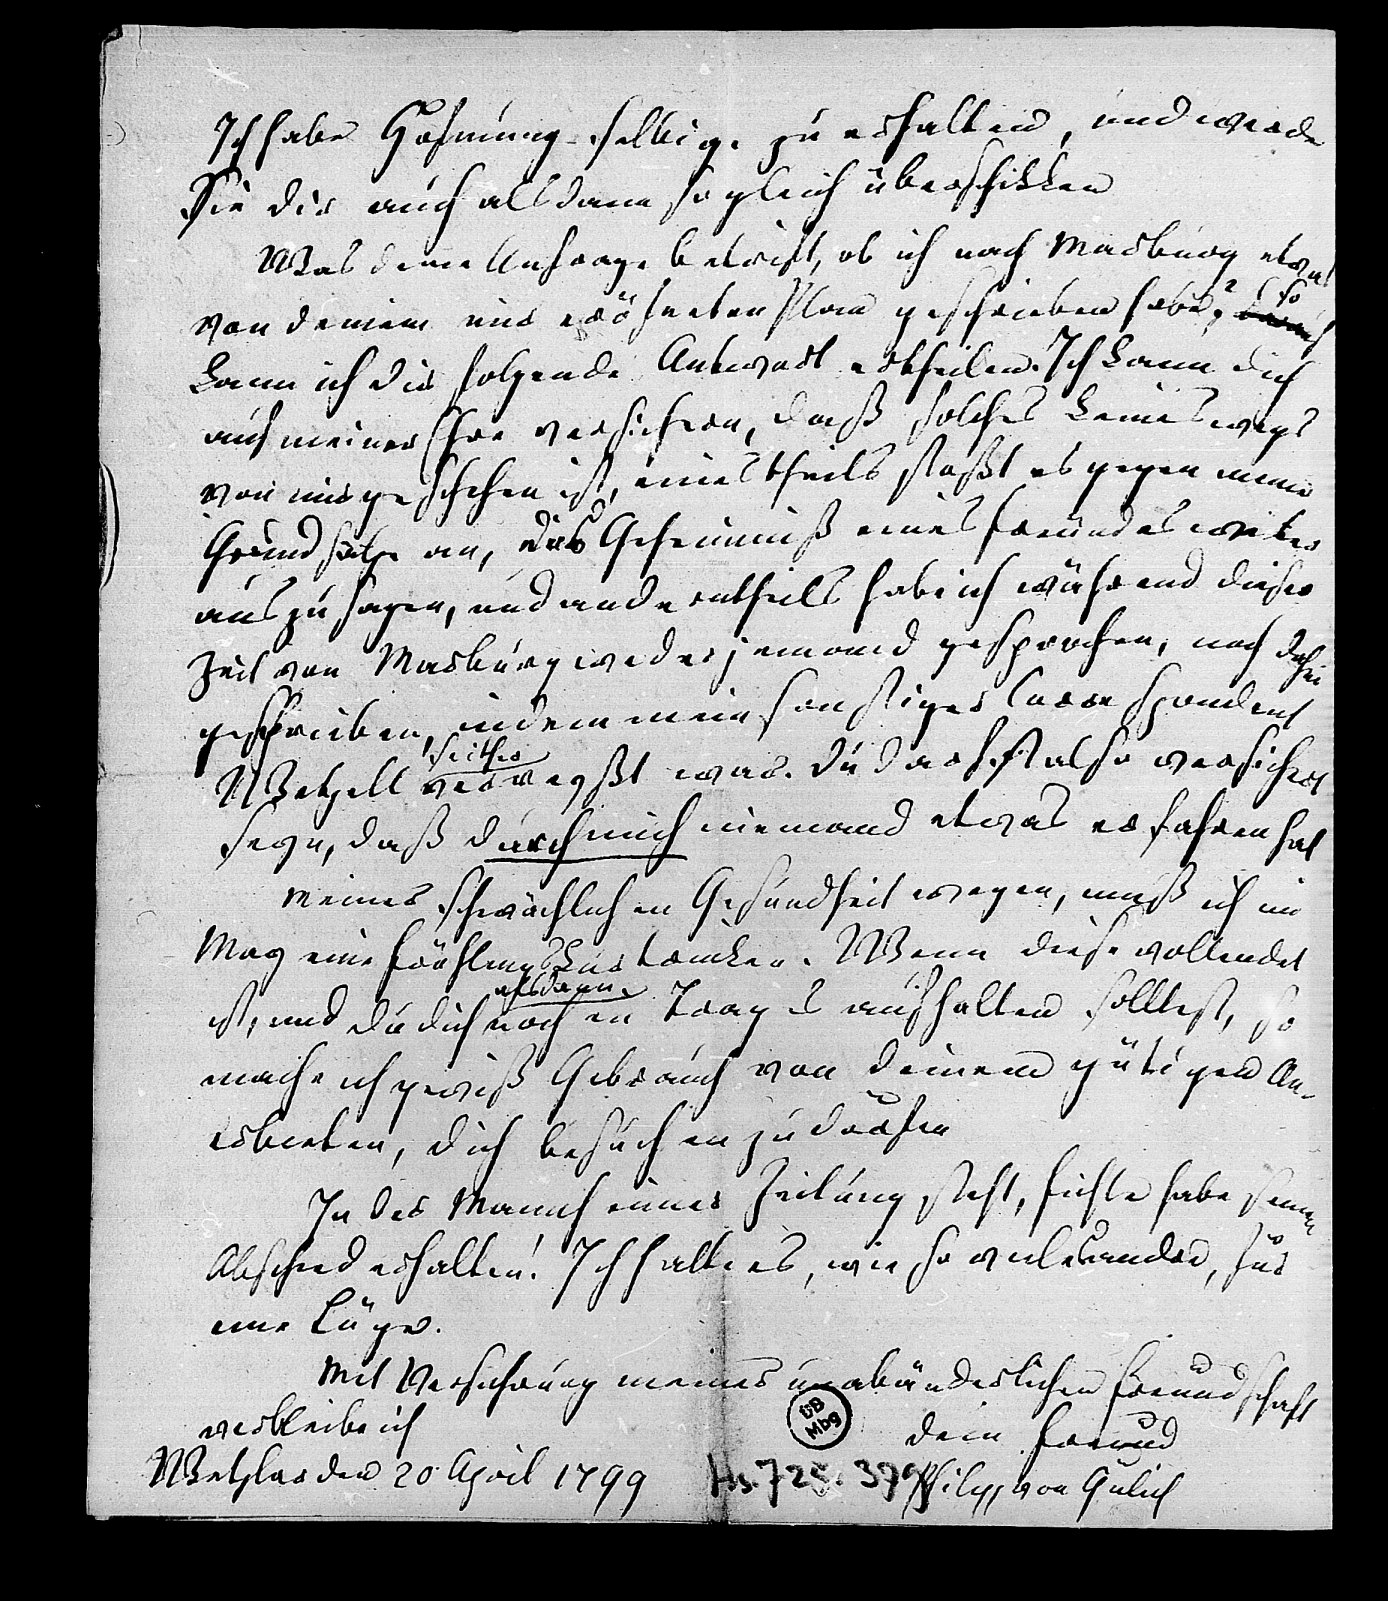 Ich habe Hofnung selbige zu erhalten, und werde
Sie dir auch alsdann sogleich überschikken
Was deine Anfrage betrift, ob ich nach Marburg etwas
von deinem mir eröfneten Plan geschrieben habe, so
kann ich dir folgende Antwort ertheilen. Ich kann dich
auf meiner Ehre versichern, daß solches keineswegs
von mir geschehen ist, eines theils stoßt es gegen meine
Grundsätze an, das Geheimniß eines Freundes weiter
auszusagen, und anderntheils habe ich während dieser
Zeit von Marburg weder jemand gesprochen, noch dahin
geschrieben, indem mein sonstiger Correspondent
Wetzell seither verreyßt war. Du darfst also versichert
seyn, daß durch mich niemand etwas erfahren hat
Meiner schwächlichen Gesundheit wegen, muß ich im
May eine Frühlingskur trinken. Wenn diese vollendet
ist, und du dich alsdann noch in Trages aufhalten solltest, so
mache ich gewiß Gebrauch von deinem gütigen An-
erbieten, dich besuchen zu dürfen
In der Mannheimer Zeitung steht, Fichte habe seinen
Abschied erhalten! Ich halte es, wie so viele andre, für
eine Lüge.
Mit Versichrung meiner unabänderlichen Freundschaft
verbleibe ich
dein Freund
Wetzlar den 20 April 1799
Philipp von Gülich
UB
Mbg
Hs. 725: 379